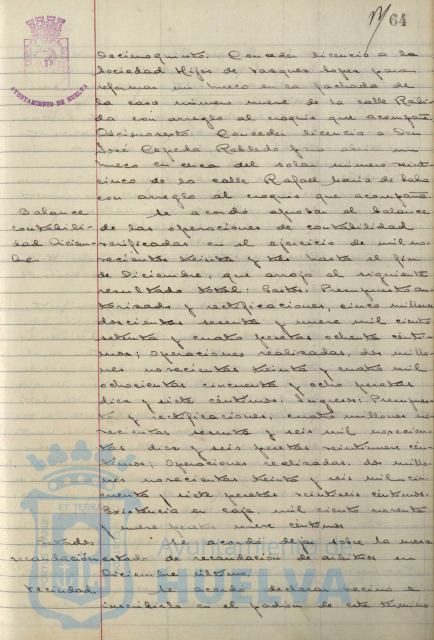 64
AYUNTAMIENTO DE HUELVA
Decimoquinto. Conceder licencia a la
Sociedad Hijos de Vazquez Lopez para
reformar un hueco en la fachada de
la casa número nueve de la calle Rabi-
da con arreglo al croquis que acompaña.
Decimosexto. Conceder licencia a Don
José Cepeda Robledo para abrir un
hueco en cerca del solar número veinti
cinco de la calle Rafael María de Labra
con arreglo al croquis que acompaña.
Balance
contabili-
dad Diciem-
bre
Se acordó aprobar el balance
de las operaciones de contabilidad
verificadas en el ejercicio de mil no-
vecientos treinta y tres hasta el fin
de Diciembre, que arroja el siguiente
resultado total: Gastos: Presupuesto au-
torizado y rectificaciones, cinco millones
doscientas sesenta y nueve mil ciento
setenta y cuatro pesetas ochenta cénti-
mos; Operaciones realizadas, dos millo-
nes novecientas treinta y cuatro mil
ochocientas cincuenta y ocho pesetas
diez y siete céntimos. Ingresos: Presupues-
to y rectificaciones, cuatro millones no-
vecientas sesenta y seis mil novecien-
tas diez y seis pesetas veintinueve cén-
timos; Operaciones realizadas, dos millo-
nes novecientas treinta y seis mil cin-
cuenta y siete pesetas veintiseis céntimos.
Existencia en caja, mil ciento noventa
y nueve pesetas nueve céntimos
Estados
recaudación
Se acordó dejar sobre la mesa
estado de recaudación de arbitrios en
Diciembre último.
Vecindad.
Se acordó declarar vecino e
inscribirlo en el padrón de este término
ET TERRAE
Ayuntamiento de
HUELVA